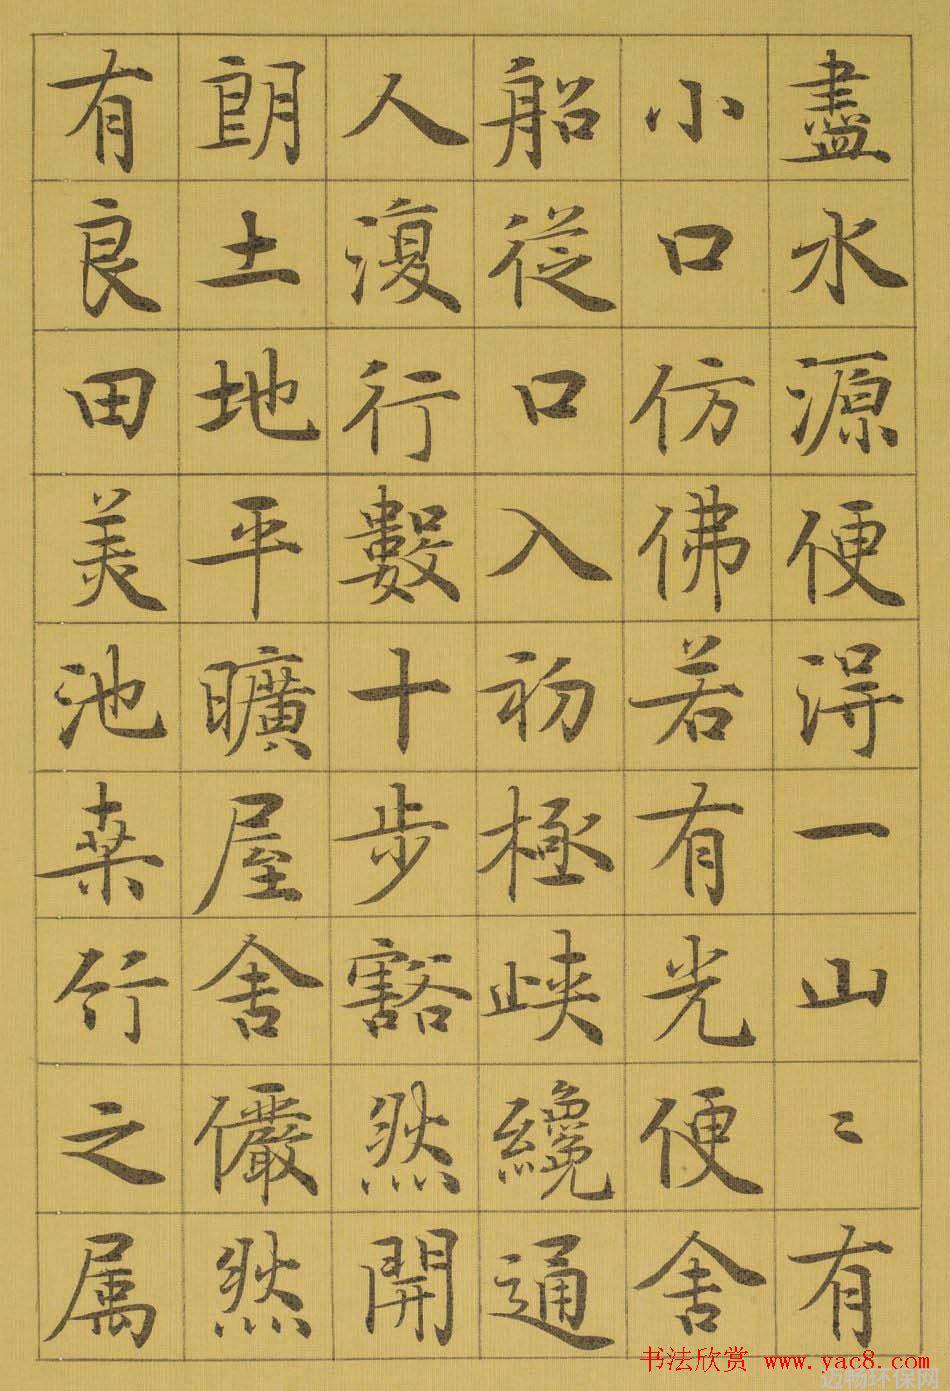 盡水源便得一山〻有
小口仿佛若有光便舍
船從口入初極峽纔通
人復行數十步豁然開
朗土地平曠屋舍儼然
有良田美池桑竹之属
书法欣赏 www.yac8.com
迈畅环保网